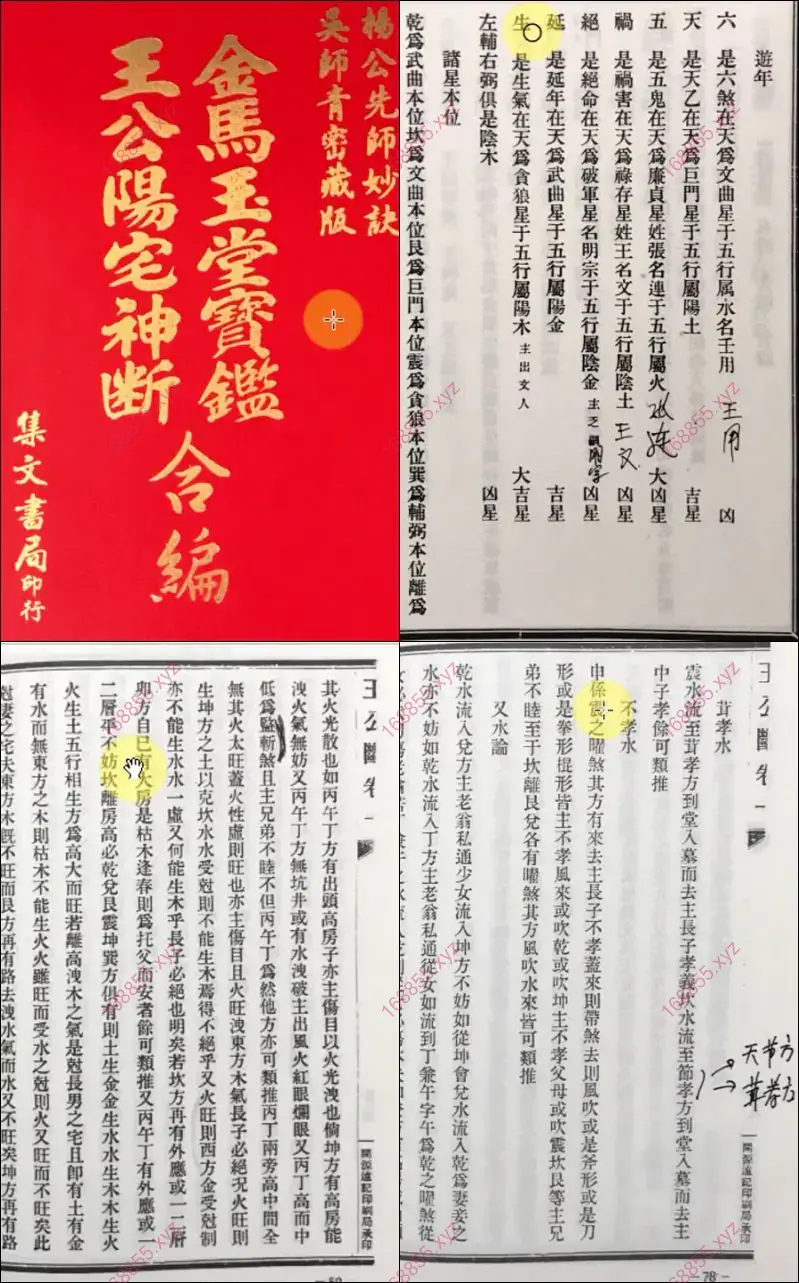 楊公先師妙訣
吳師青密藏版
金馬玉堂寶鑑
王公陽宅神断
合編
集文書局印行
遊年
六 是六煞在天爲文曲星于五行属水名王用 王用 凶
天 是天乙在天爲巨門星于五行屬陽土 吉星
五 是五鬼在天爲廉貞星姓張名連于五行屬火 大凶星
禍 是禍害在天爲祿存星姓王名文于五行屬陰土 王文 凶星
絕 是絕命在天爲破軍星名明宗于五行屬陰金 凶星
延 是延年在天爲武曲星于五行屬陽金 吉星
生 是生氣在天爲貪狼星于五行屬陽木 主出文人 大吉星
左輔右弼俱是陰木 凶星
諸星本位
乾爲武曲本位坎爲文曲本位艮爲巨門本位震爲貪狼本位巽爲輔弼本位離爲
其火光散也如丙午丁方有出頭高房子亦主傷目以火光洩也倘坤方有高房能
洩火氣無妨又丙午丁方無坑井或有水洩破主出風火紅眼爛眼又丙丁高而中
低爲監斬煞且主兄弟不睦不但丙午丁爲然他方亦可類推丙丁兩旁高中間全
無其火太旺蓋火性虛則旺也亦主傷目且火旺洩東方木氣長子必絕況火旺則
生坤方之土以克坎水水受尅則不能生木焉得不絕乎又火旺則西方金受尅制
亦不能生水水一虛又何能生木乎長子必絕也明矣若坎方再有外應或一二層
卯方自已有火房是枯木逢春則爲托父而安者餘可類推又丙午丁有外應或一
二層平不妨坎離房高必乾兌艮震坤巽方俱有則土生金金生水水生木木生火
火生土五行相生方爲高大而旺若離高洩木之氣是尅長男之宅且卽有土有金
有水而無東方之木則枯木不能生火火雖旺而受水之尅則火又旺而不旺矣此
尅妻之宅夫東方木旣不旺而艮方再有路去洩水氣而水又不旺矣坤方再有路
王公斷卷一
開源遠記印刷局承印
王公斷卷一
茸孝水
震水流至茸孝方到堂入墓而去主長子孝義坎水流至節孝方到堂入墓而去主
中子孝餘可類推
不孝水
申係震之曜煞其方有來去主長子不孝蓋來則帶煞去則風吹或是斧形或是刀
形或是拳形棍形皆主不孝風來或吹乾或吹坤主不孝父母或吹震坎艮等主兄
弟不睦至于坎離艮兌各有曜煞其方風吹水來皆可類推
又水論
乾水流入兌方主老翁私通少女流入坤方不妨如從坤會兌水流入乾爲妻妾之
水亦不妨如乾水流入丁方主老翁私通從女如流到丁兼午字午爲乾之曜煞從
天节方
茸孝方
開源遠記印刷局承印
—78—
168855.xyz